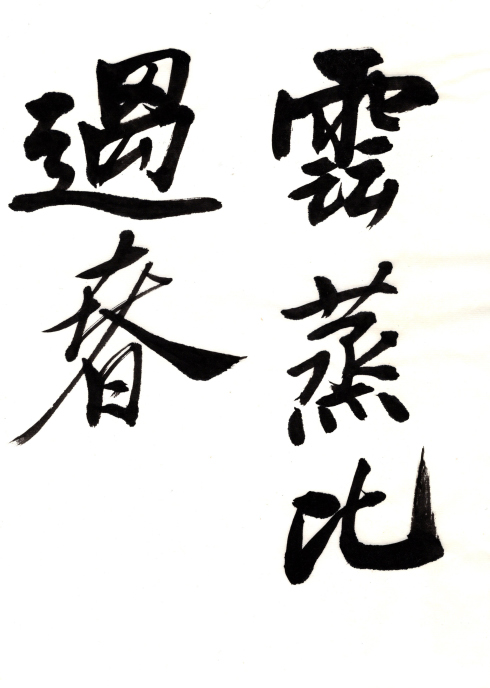 雲蒸比
過春